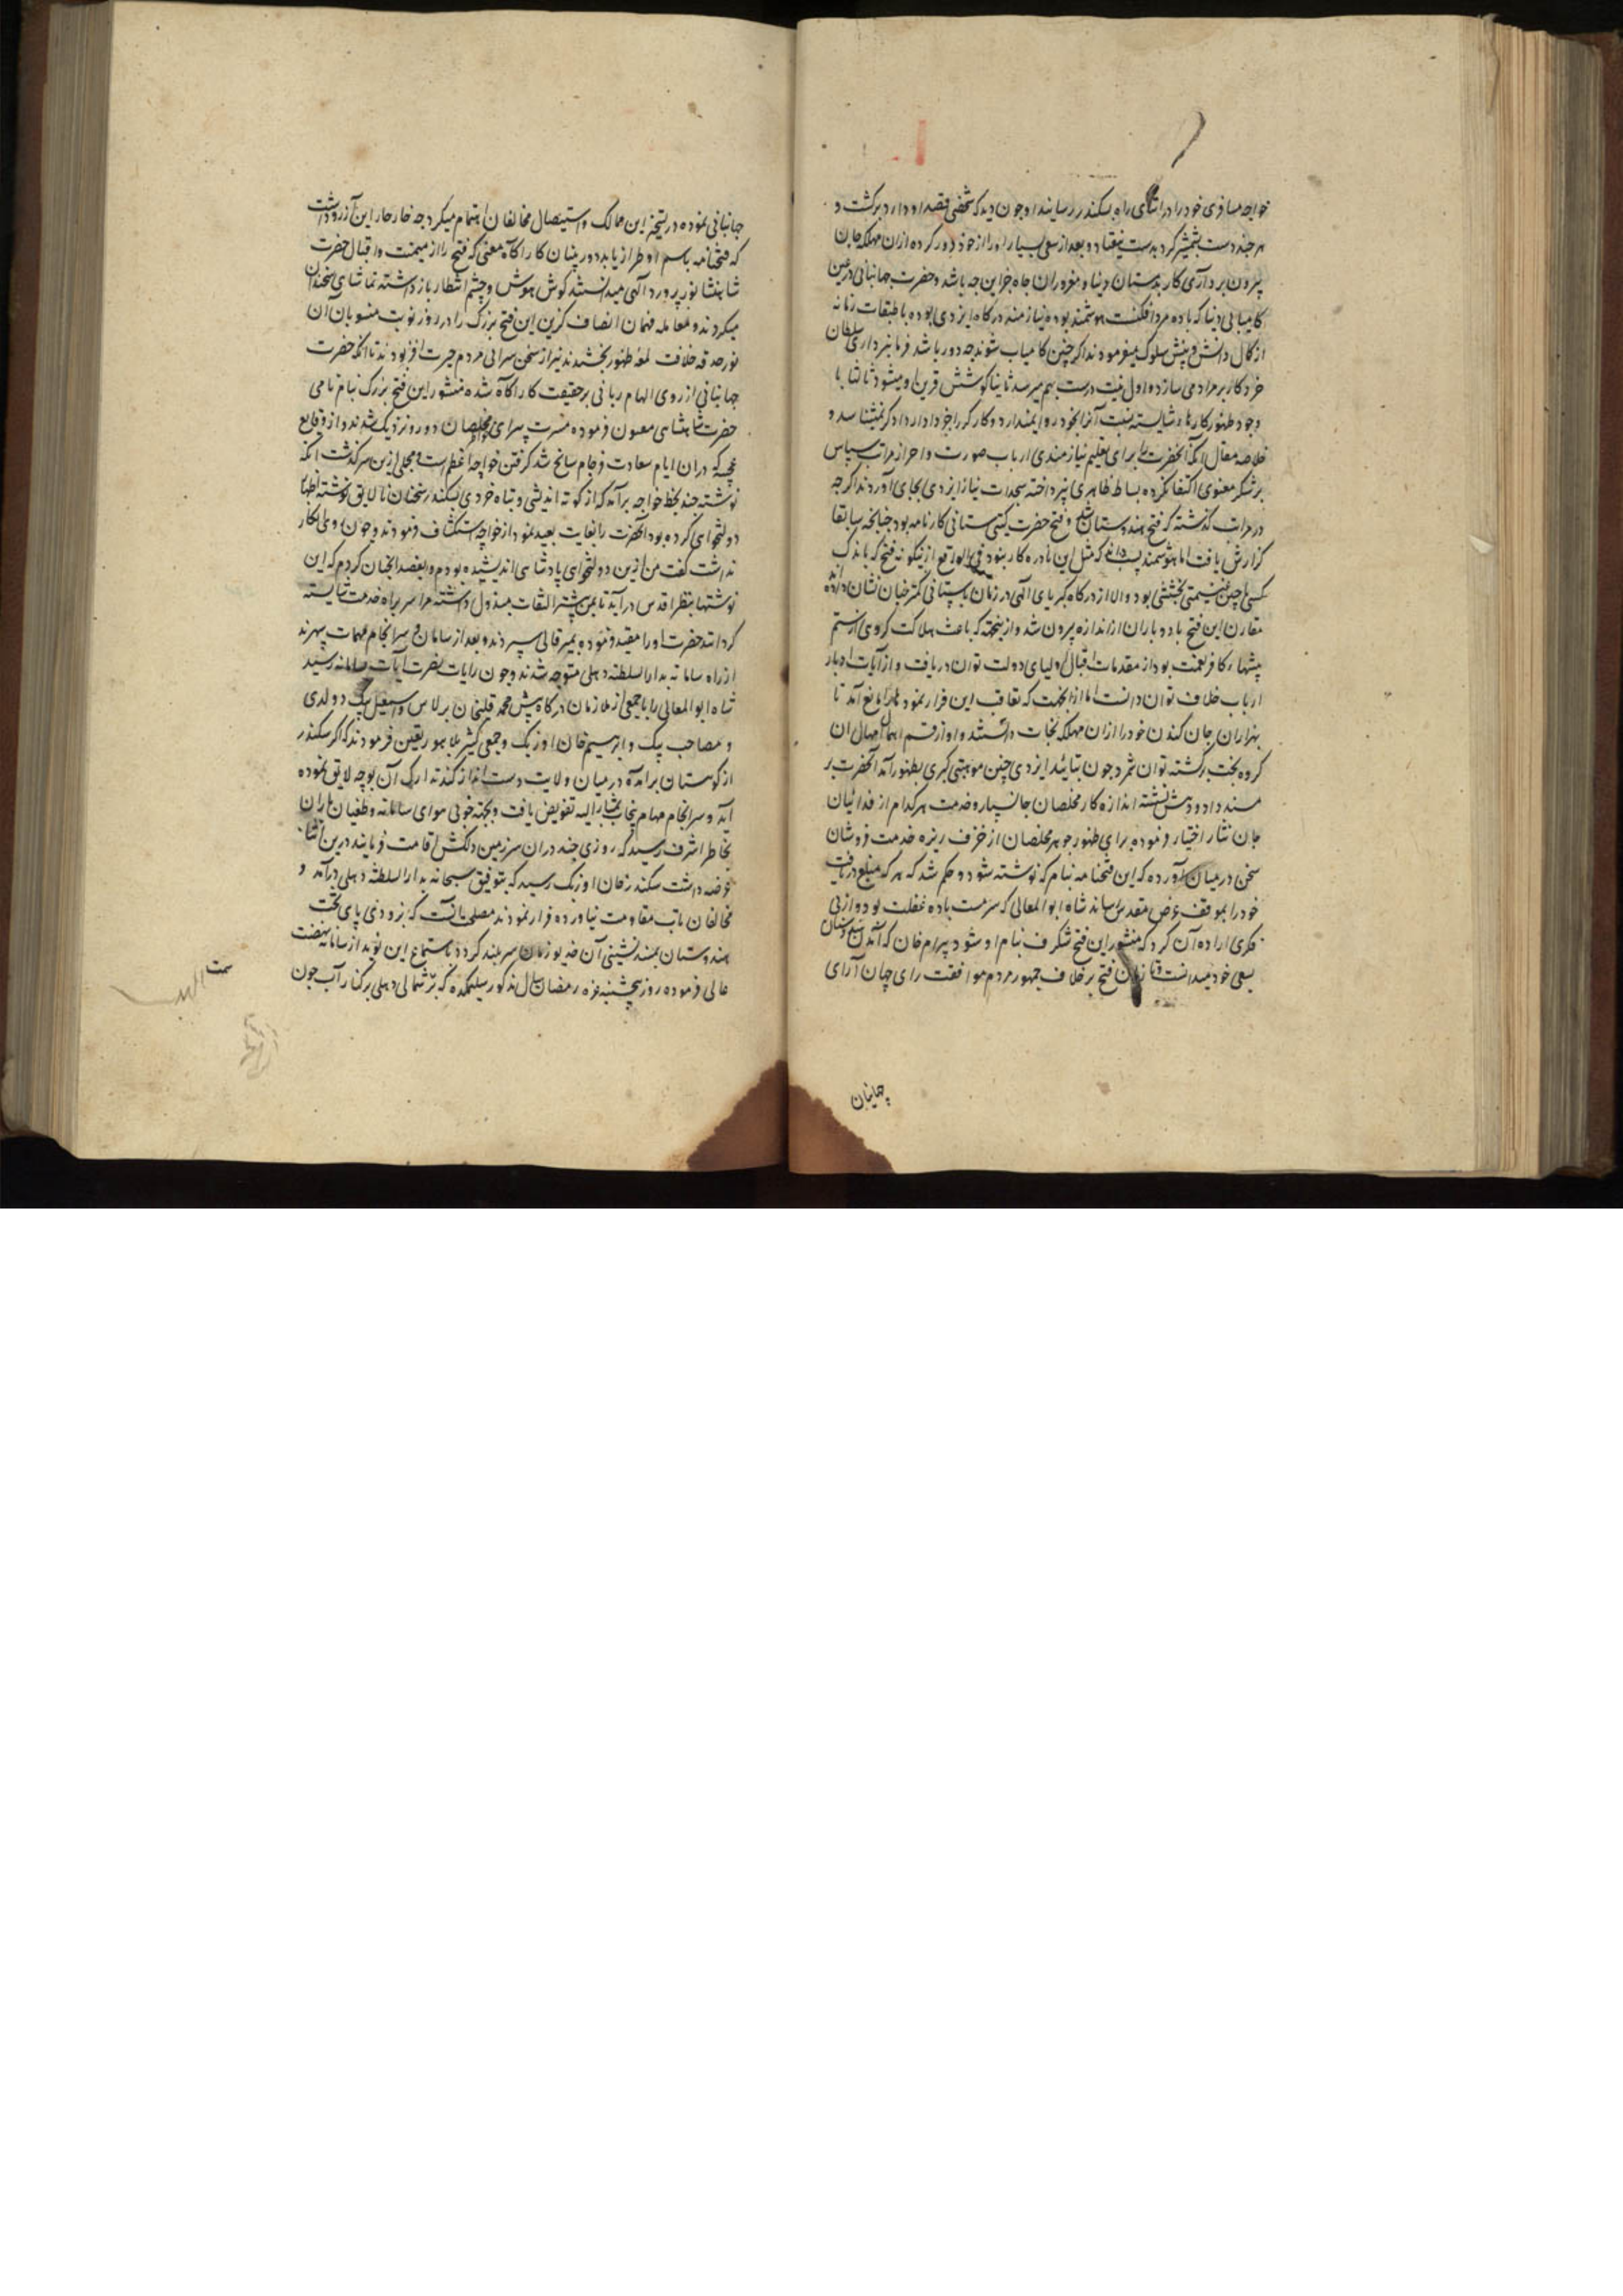 خواجه مسافری خود را در اثنای راه بسکندر رسانید او چون دید که شخصی قصد او دارد برگشت و
هر چند دست بشمشیر کرد بدست نیفتاد و بعد از سعی بسیار او را از خود دور کرده ازان مهلکه جان
بیرون برد آری کار بدمستان دنیا و مغروران جاه جز این چه باشد و حضرت جهانبانی در عین
کامیابی دنیا که باده مرد افکنست هوشمند بوده نیازمند درگاه ایزدی بوده با طبقات زمانه
از کمال دانش و بینش سلوک میفرمودند اگر چنین کامیاب شوند چه دور باشد فرمانبرداری سلطان
خرد کار بر مراد می سازد و اول نیت درست بهم میرسد ثانیا کوشش قرین او میشود ثالثا با
وجود ظهور کارهای شایسته نسبت آنرا بخود روا نمیدارد و کارگر را جز دادار دادگر نمیشناسد و
خلاصه مقال آنکه آنحضرت برای تعلیم نیازمندی ارباب صورت و احراز مراتب سپاس
بر شکر معنوی اکتفا نکرده بساط ظاهری نیز پرداخته سجدات نیاز ایزدی بجای آوردند اگرچه
در مرات گذشته که فتح هندوستان شد و فتح حضرت گیتی ستانی کارنامه بود چنانچه سابقا
گزارش یافت اما هوشمند داند که مثل این نادره کار نبود فی الواقع ازینگونه فتح که باندک
کسی چنین غنیمتی بخششی بود والا از درگاه کبریای الهی در زمان باستانی کمتر چنان نشان داده
مقارن این فتح باد و باران از اندازه بیرون شد و ازینجهت که باعث هلاکت گروهی از ستم
پیشهای کافرنعمت بود از مقدمات اقبال اولیای دولت توان دریافت و از آیات ادبار
ارباب خلاف توان دانست اما ازانجهت که تعاقب این فرار نمودها را مانع آمد تا
بهزاران جان کندن خود را ازان مهلکه نجات دانستند و او از قسم اهمال امهال ان
گروه بخت برگشته توان شمرد چون بتائید ایزدی چنین موهبتی کبری بظهور آمد آنحضرت بر
مسند داد و دهش نشسته اندازه کار مخلصان جانسپار و خدمت هر کدام از فدائیان
جان نثار اختیار فرموده برای ظهور جوهر مخلصان از خزف ریزه خدمت فروشان
سخن در میان آورده که این فتحنامه بنام که نوشته شود و حکم شد که هر که مبلغ دریافت
خود را بموقف عرض مقدس رساند شاه ابوالمعالی که سرمست باده غفلت بود و از بی
فکری اراده آن کرد که منشور این فتح شگرف بنام او شود بیرام خان که آمدن بهندوستان
بسعی خود میدانست و تا زمان فتح برخلاف جمهور مردم موافقت رای جهان آرای
جهانبان
جهانبانی نموده در تسخیر این ممالک و استیصال مخالفان اهتمام میکرد چه خار خار این آرزو داشت
که فتحنامه باسم او طراز یابد و دوربینان کار آگاه معنی که فتح را از میمنت و اقبال حضرت
شاهنشاه نور پرورد الهی میدانستند گوش هوش و چشم انتظار باز داشته تماشای سخنان
میکردند و معامله فهمان انصاف گزین این فتح بزرگ را در روز نوبت منسوبان آن
نور حدقه خلافت لمعه ظهور بخشیدند نیز از سخن سرایی مردم حیرت افزبودند تا آنکه حضرت
جهانبانی از روی الهام ربانی بر حقیقت کار آگاه شده منشور این فتح بزرگ بنام نامی
حضرت شاهنشاهی معنون فرموده مسرت پیرای مخلصان دور و نزدیک شدند و از وقایع
عجیبه که دران ایام سعادت فرجام سانح شد گرفتن خواجه اعظم است و مجملی ازین سرگذشت آنکه
نوشته چند بخط خواجه برآمد که از کوته اندیشی و تباه خردی بسکندر سخنان نالایق نوشته اظهار
دولتخواهی کرده بود آنحضرت را بغایت بعید نمود از خواجه استکشاف فرمودند و چون روی انکار
نداشت گفت من ازین دولتخواهی پادشاهی اندیشیده بودم و بقصد آنچنان کردم که این
نوشتها بنظر اقدس درآید تا بمن بیشتر التفات مبذول داشته مرا سربراه خدمت شایسته
گردانند حضرت او را مقید فرموده بمیر قالی سپردند و بعد از سامان و سرانجام مهمات سهرند
از راه سامانه بدار السلطنه دهلی متوجه شدند و چون رایات نصرت آیات بسامانه رسید
شاه ابوالمعالی را با جمعی از ملازمان درگاه مثل محمد قلیخان برلاس و اسمعیل بیک دولدی
و مصاحب بیک و ابراهیم خان اوزبک و جمعی کثیر بلاهور تعین فرمودند که اگر سکندر
از کوهستان برآمده در میان ولایت دست انداز کند تدارک آن بوجه لایق نموده
آید و سرانجام مهام پنجاب بمشار الیه تفویض یافت و بجهة خوبی هوای سامانه و طغیان باران
بخاطر اشرف رسید که روزی چند دران سرزمین دلکش اقامت فرمایند درین اثنا
عرضه داشت سکندر خان اوزبک رسید که بتوفیق سبحانه بدار السلطنه دهلی درآمد و
مخالفان تاب مقاومت نیاورده فرار نمودند مصلحت آنست که بزودی پای تخت
هندوستان بمسند نشینی آن خدیو زمان سربلند گردد باستماع این نوید از سامانه نهضت
عالی فرموده روز پنجشنبه غره رمضان سال مذکور سلیمگده که بر شمالی دهلی بر کنار آب جون
سمت